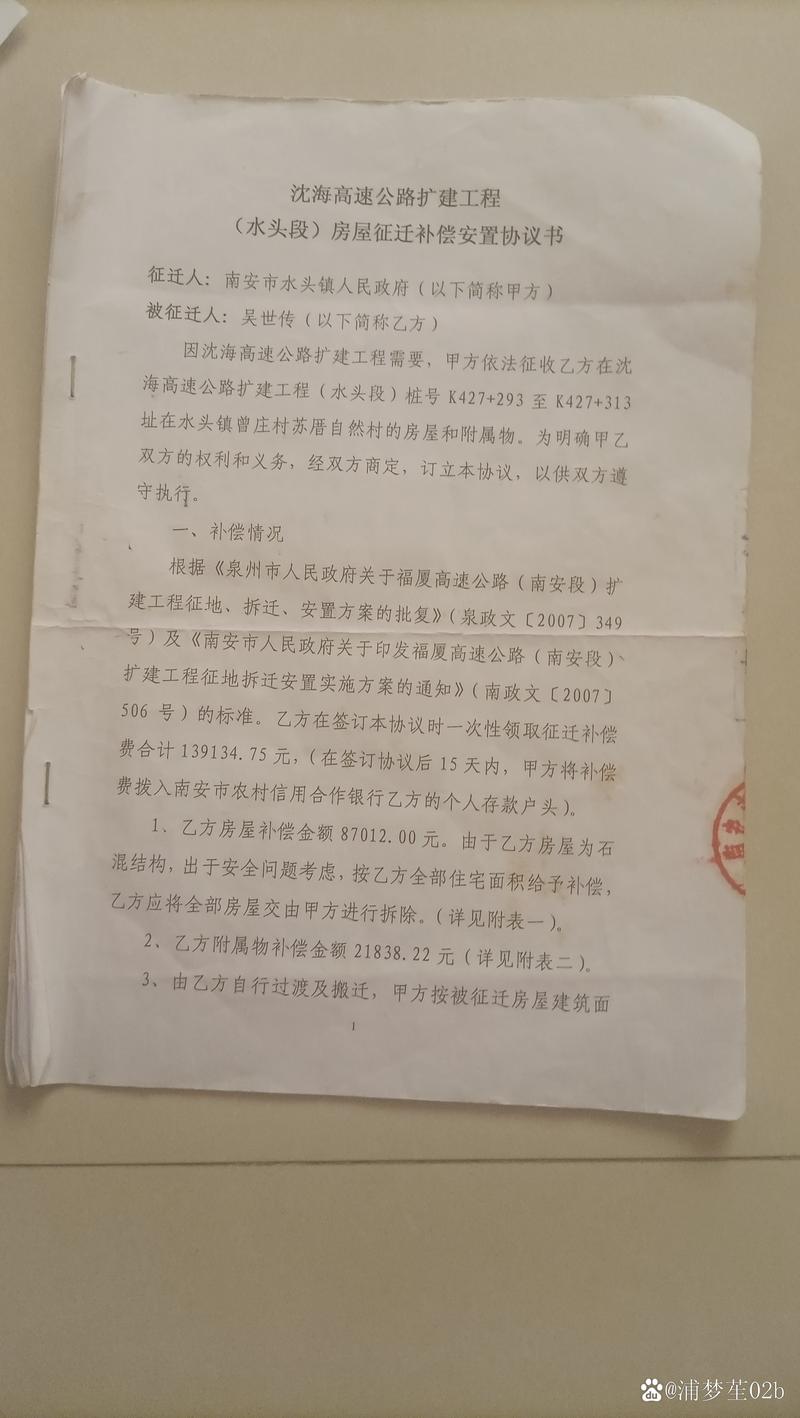 沈海高速公路扩建工程
（水头段）房屋征迁补偿安置协议书
征迁人：南安市水头镇人民政府（以下简称甲方）
被征迁人：吴世传（以下简称乙方）
因沈海高速公路扩建工程需要，甲方依法征收乙方在沈
海高速公路扩建工程（水头段）桩号 K427+293 至 K427+313
址在水头镇曾庄村苏厝自然村的房屋和附属物。为明确甲乙
双方的权利和义务，经双方商定，订立本协议，以供双方遵
守执行。
一、补偿情况
根据《泉州市人民政府关于福厦高速公路（南安段）扩
建工程征地、拆迁、安置方案的批复》（泉政文〔2007〕349
号）及《南安市人民政府关于印发福厦高速公路（南安段）
扩建工程征地拆迁安置实施方案的通知》（南政文〔2007〕
506 号）的标准。乙方在签订本协议时一次性领取征迁补偿
费合计 139134.75 元，（在签订协议后 15 天内，甲方将补偿
费拨入南安市农村信用合作银行乙方的个人存款户头）。
1、乙方房屋补偿金额 87012.00 元。由于乙方房屋为石
混结构，出于安全问题考虑，按乙方全部住宅面积给予补偿，
乙方应将全部房屋交由甲方进行拆除。（详见附表一）。
2、乙方附属物补偿金额 21838.22 元（详见附表二）。
3、由乙方自行过渡及搬迁，甲方按被征迁房屋建筑面
1
du @浦梦茥02b